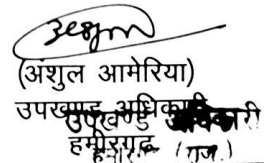 (अंशुल आमेरिया)
उपखण्ड अधिकारी
उपखण्ड अधिकारी
हमीरगढ़
(राज.)